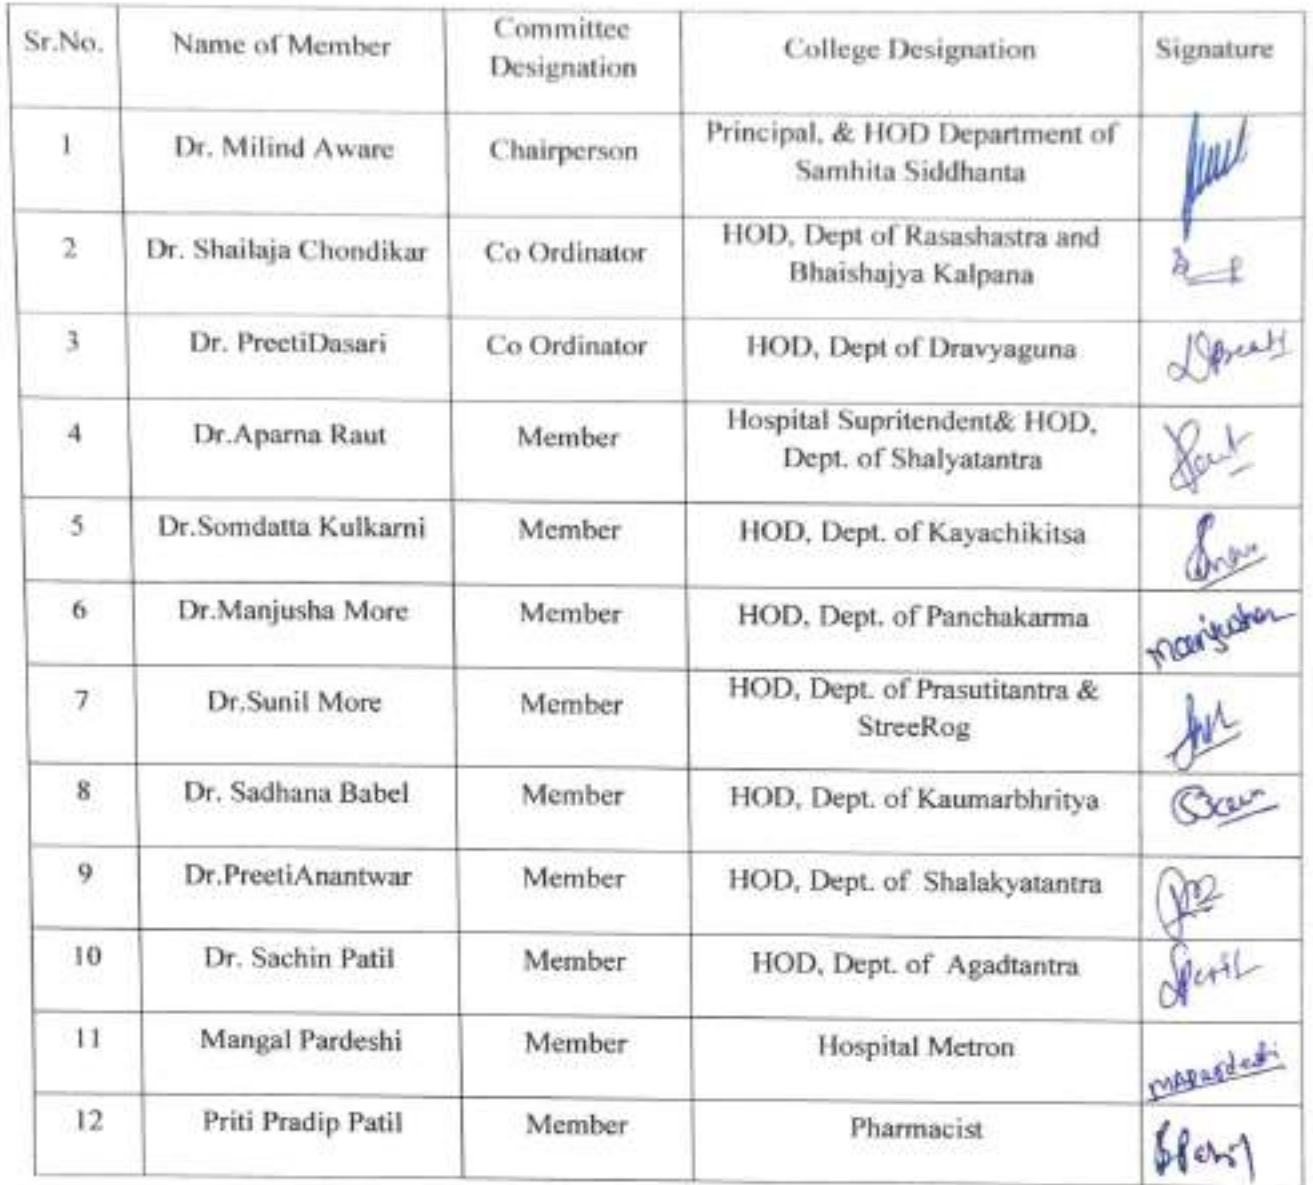 Sr.No. Name of Member Committee Designation College Designation Signature
1 Dr. Milind Aware Chairperson Principal, & HOD Department of
Samhita Siddhanta
2 Dr. Shailaja Chondikar Co Ordinator HOD, Dept of Rasashastra and
Bhaishajya Kalpana
3 Dr. PreetiDasari Co Ordinator HOD, Dept of Dravyaguna
4 Dr.Aparna Raut Member Hospital Supritendent& HOD,
Dept. of Shalyatantra
5 Dr.Somdatta Kulkarni Member HOD, Dept. of Kayachikitsa
6 Dr.Manjusha More Member HOD, Dept. of Panchakarma
7 Dr.Sunil More Member HOD, Dept. of Prasutitantra &
StreeRog
8 Dr. Sadhana Babel Member HOD, Dept. of Kaumarbhritya
9 Dr.PreetiAnantwar Member HOD, Dept. of Shalakyatantra
10 Dr. Sachin Patil Member HOD, Dept. of Agadtantra
11 Mangal Pardeshi Member Hospital Metron MAPardeshi
12 Priti Pradip Patil Member Pharmacist